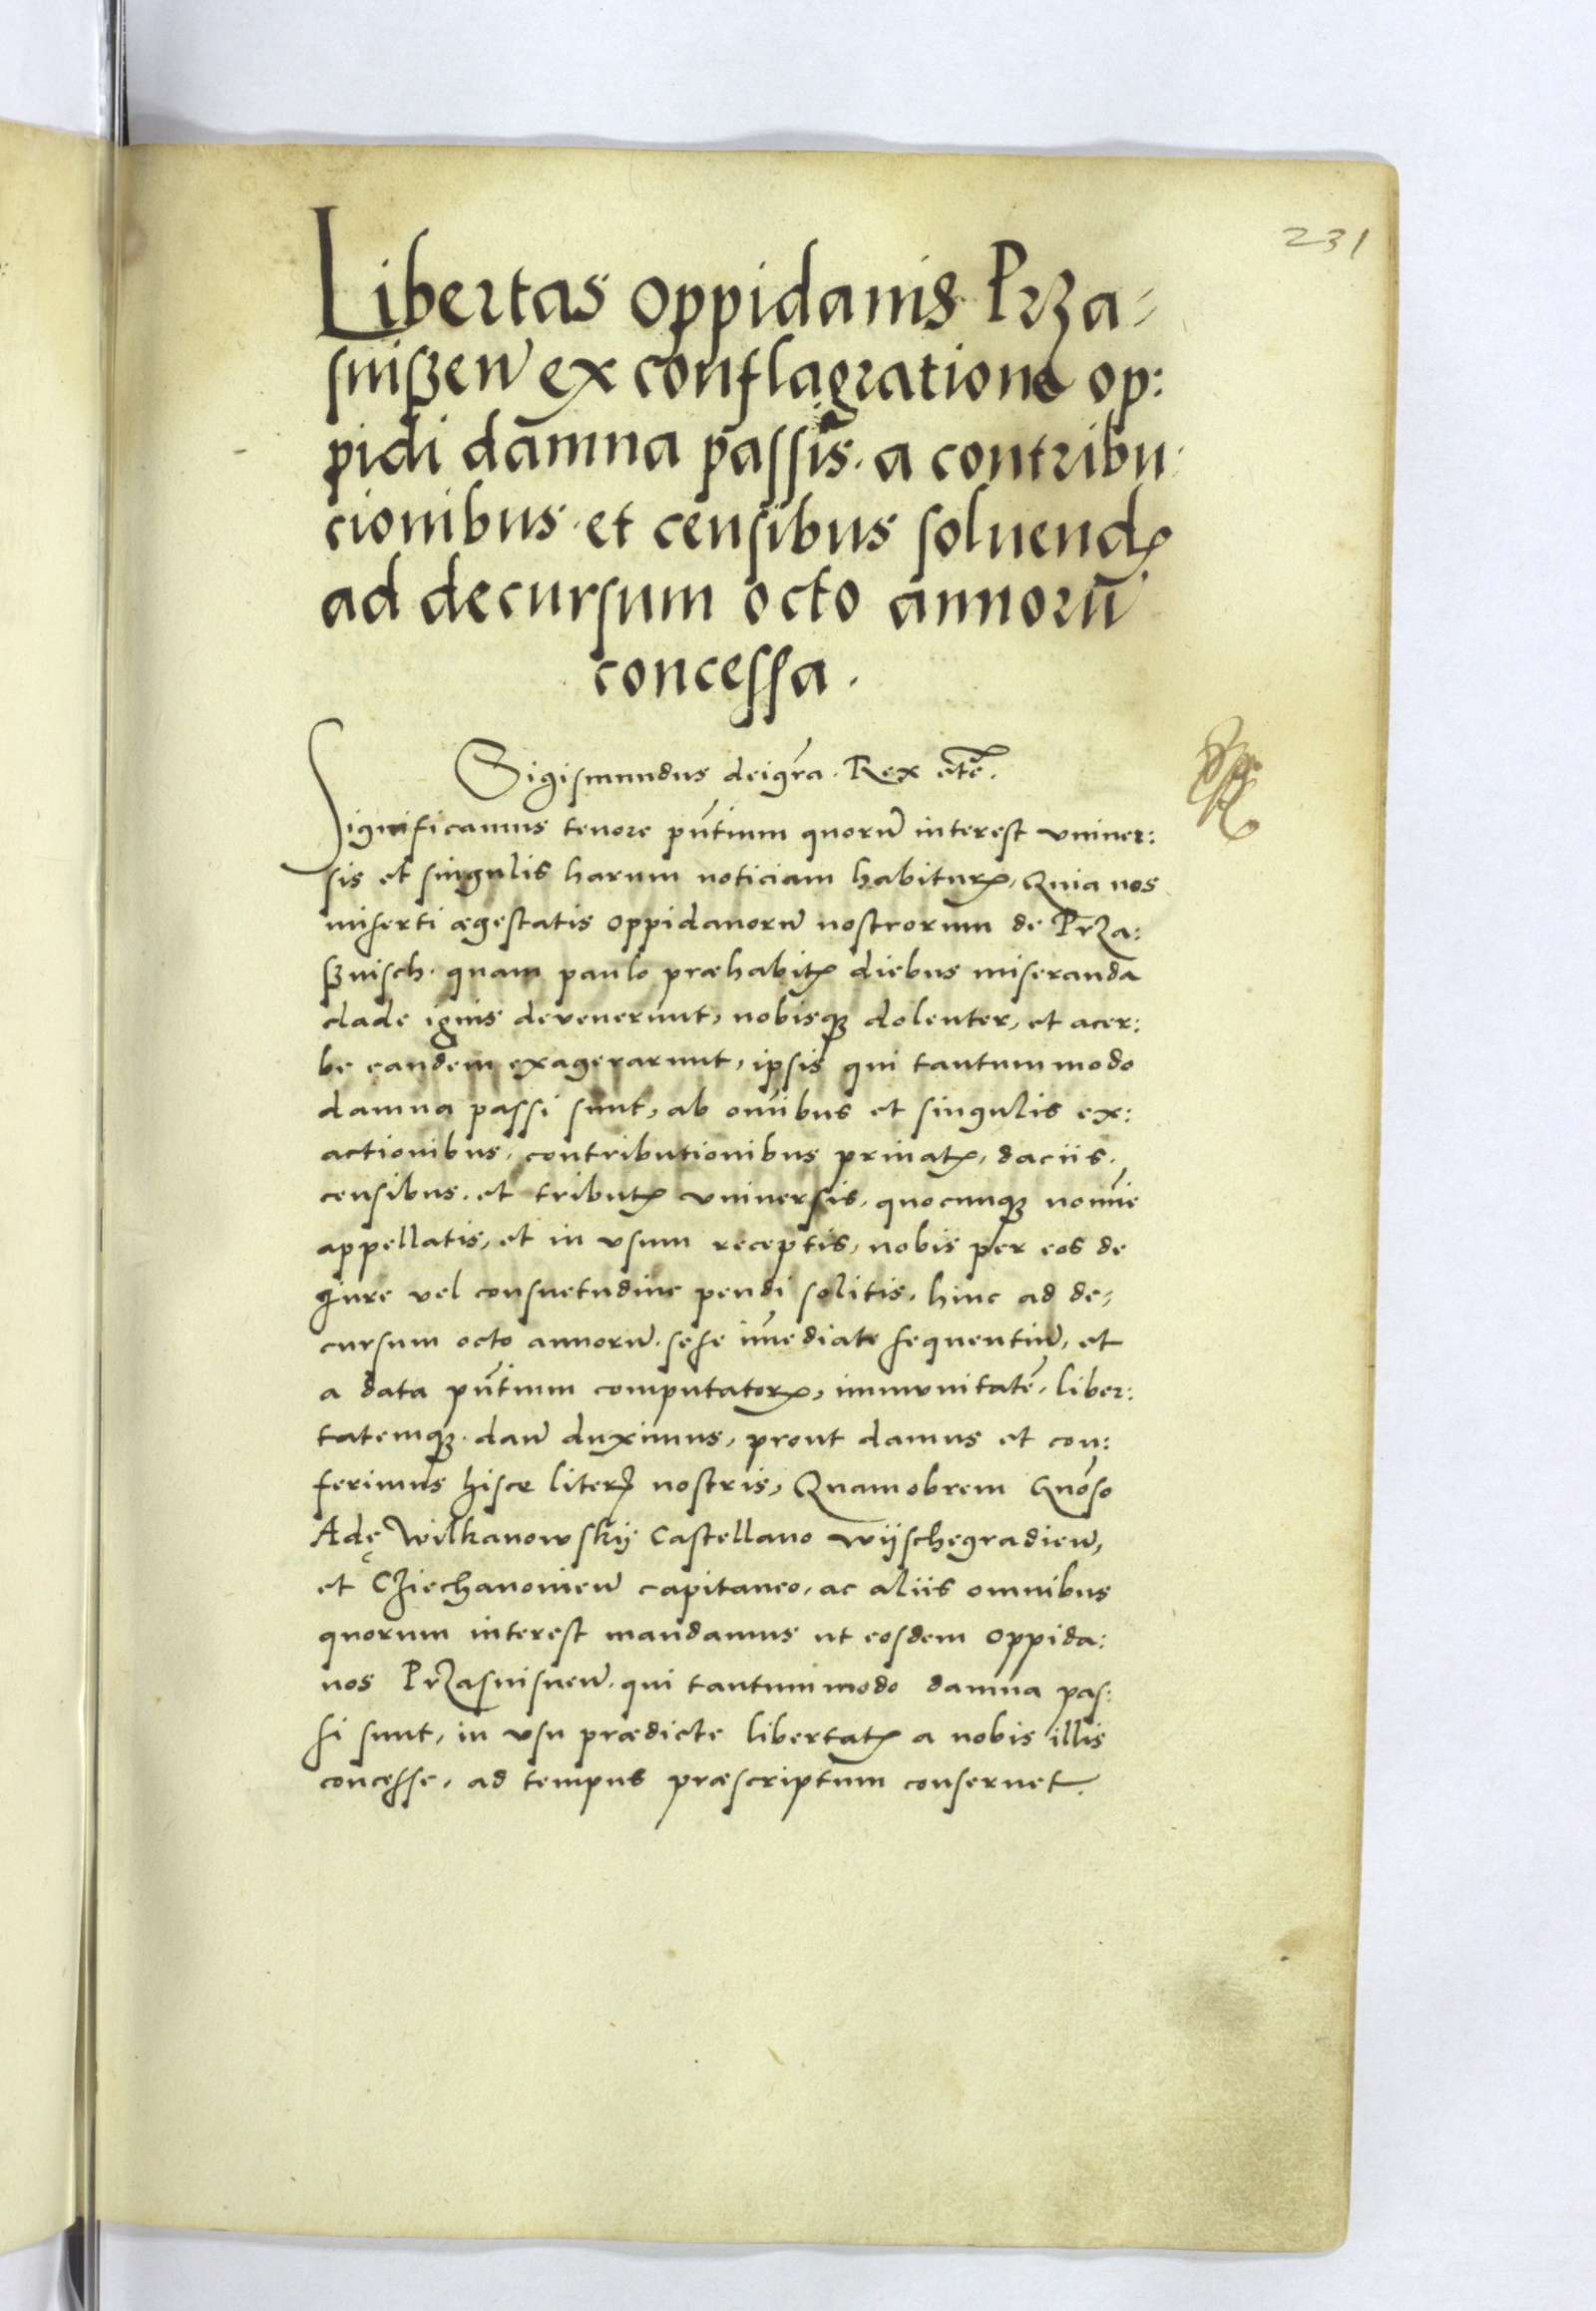 231
Libertas oppidanis Prza-
snißen̄ ex conflagratione op:
pidi damna passis. a contribu:
cionibus. et censibus soluendꝭ
ad decursum octo annorū
concessa.
Sigismundus dei gr̄a. Rex etc̄.
Significamus tenore pn̄tium quorū interest vniuer:
sis et singulis harum noticiam habiturꝭ, Quia nos
miserti ægestatis oppidanorū nostrorum de Prza:
ßnisch. quam paulo præhabitꝭ diebus miseranda
clade ignis devenerunt, nobisqꝫ dolenter, et acer:
be eandem exagerarunt, ipsis qui tantummodo
damna passi sunt, ab om̄ibus et singulis ex:
actionibus, contributionibus priuatꝭ, daciis.
censibus. et tributꝭ vniuersis. quocunqꝫ nomīe
appellatis, et in vsum receptis, nobis per eos de
iure vel consuetudine pendi solitis. hinc ad de-
cursum octo annorū. sese īmediate sequentiū, et
a data pn̄tium computatorꝭ, immunitatē, liber:
tatemqꝫ. dan̄ duximus, prout damus et con:
ferimus hisce literꝭ nostris, Quamobrem Gn̄oso
Adę Wilkanowskÿ Castellano Wÿschegradien̄,
et Cziechanouien̄ capitaneo, ac aliis omnibus
quorum interest mandamus ut eosdem oppida:
nos Przasnisnen̄. qui tantummodo damna pas:
si sunt, in vsu prædicte libertatꝭ a nobis illis
concesse, ad tempus præscriptum conseruet.